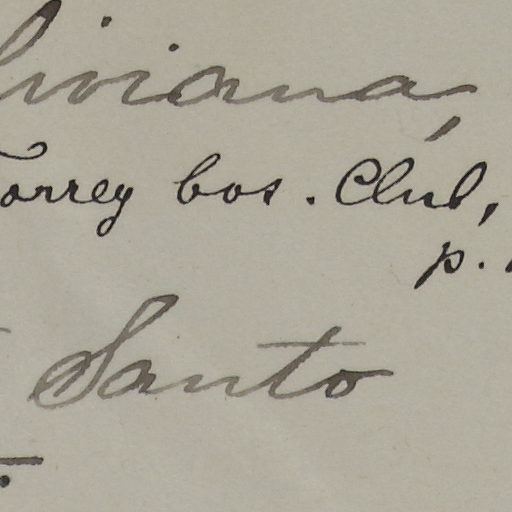 liviana,
Torrey bot. Club,
p.
Santo